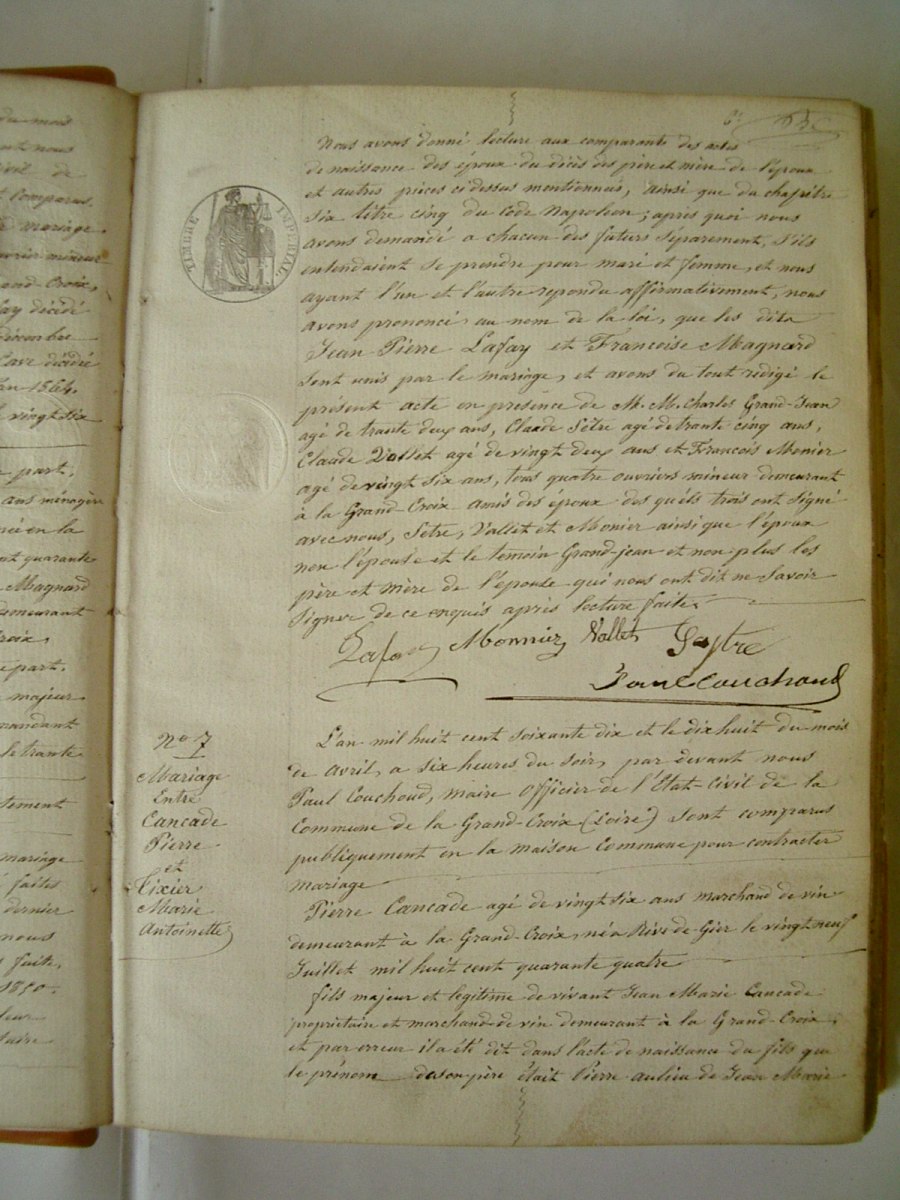 du mois
ent nous
ivil de
t comparus
mariage
ouvrier mineur
and Croix,
ay décédé
décembre
Cave décédée
in 1864.
vingt six
e part,
ans ménagère
née en la
nt quarante
e Magnard
demeurant
roix,
e part.
majeur
le trante
mariage
faites
dernier
nous
faite,
1850.
6e
TIMBRE IMPERIAL
Nous avons donné lecture aux comparants des actes
de naissance des époux du décès des père et mère de l'époux
et autres pièces ci dessus mentionnés, ainsi que du chapitre
six titre cinq du Code Napoléon; après quoi nous
avons demandé a chacun des futurs séparement, S'ils
entendaient se prendre pour mari et femme, et nous
ayant l'un et l'autre repondu affirmativement, nous
avons prononcé, au nom de la loi, que les dits
Jean Pierre Lafay et Francoise Magnard
Sont unis par le mariage, et avons du tout redigé le
présent acte en presence de M. M. Charles Grand-Jean
agé de trante deux ans, Claude Sètre agé de trante cinq ans,
Claude Vallet agé de vingt deux ans et Francois Monier
agé de vingt six ans, tous quatre ouvriers mineur demeurant
à la Grand Croix amis des époux des quels trois ont signé
avec nous, Sètre, Vallet et Monier ainsi que l'époux
non l'épouse et le temoin Grand-jean et non plus les
père et mère de l'épouse qui nous ont dit ne Savoir
Signer de ce enquis après lecture faite.
Lafay Monnier Vallet Seytre
Paul Couchoud
No 7
Mariage
Entre
Cancade
Pierre
et
Tixier
Marie
Antoinette
L'an mil huit cent soixante dix et le dix huit du mois
de Avril, a six heures du soir, par devant nous
Paul Couchoud, maire Officier de l'Etat-Civil de la
Commune de la Grand-Croix (Loire) Sont comparus
publiquement en la maison Commune pour contracter
mariage
Pierre Cancade agé de vingt six ans marchand de vin
demeurant à la Grand-Croix, né a Rive de Gier le vingt neuf
Juillet mil huit cent quarante quatre
fils majeur et legitime de vivant Jean Marie Cancade
propriétaire et marchand de vin demeurant à la Grand-Croix.
et par erreur il a été dit dans l'acte de naissance du fils que
le prénom de son père était Pierre au lieu de Jean Marie